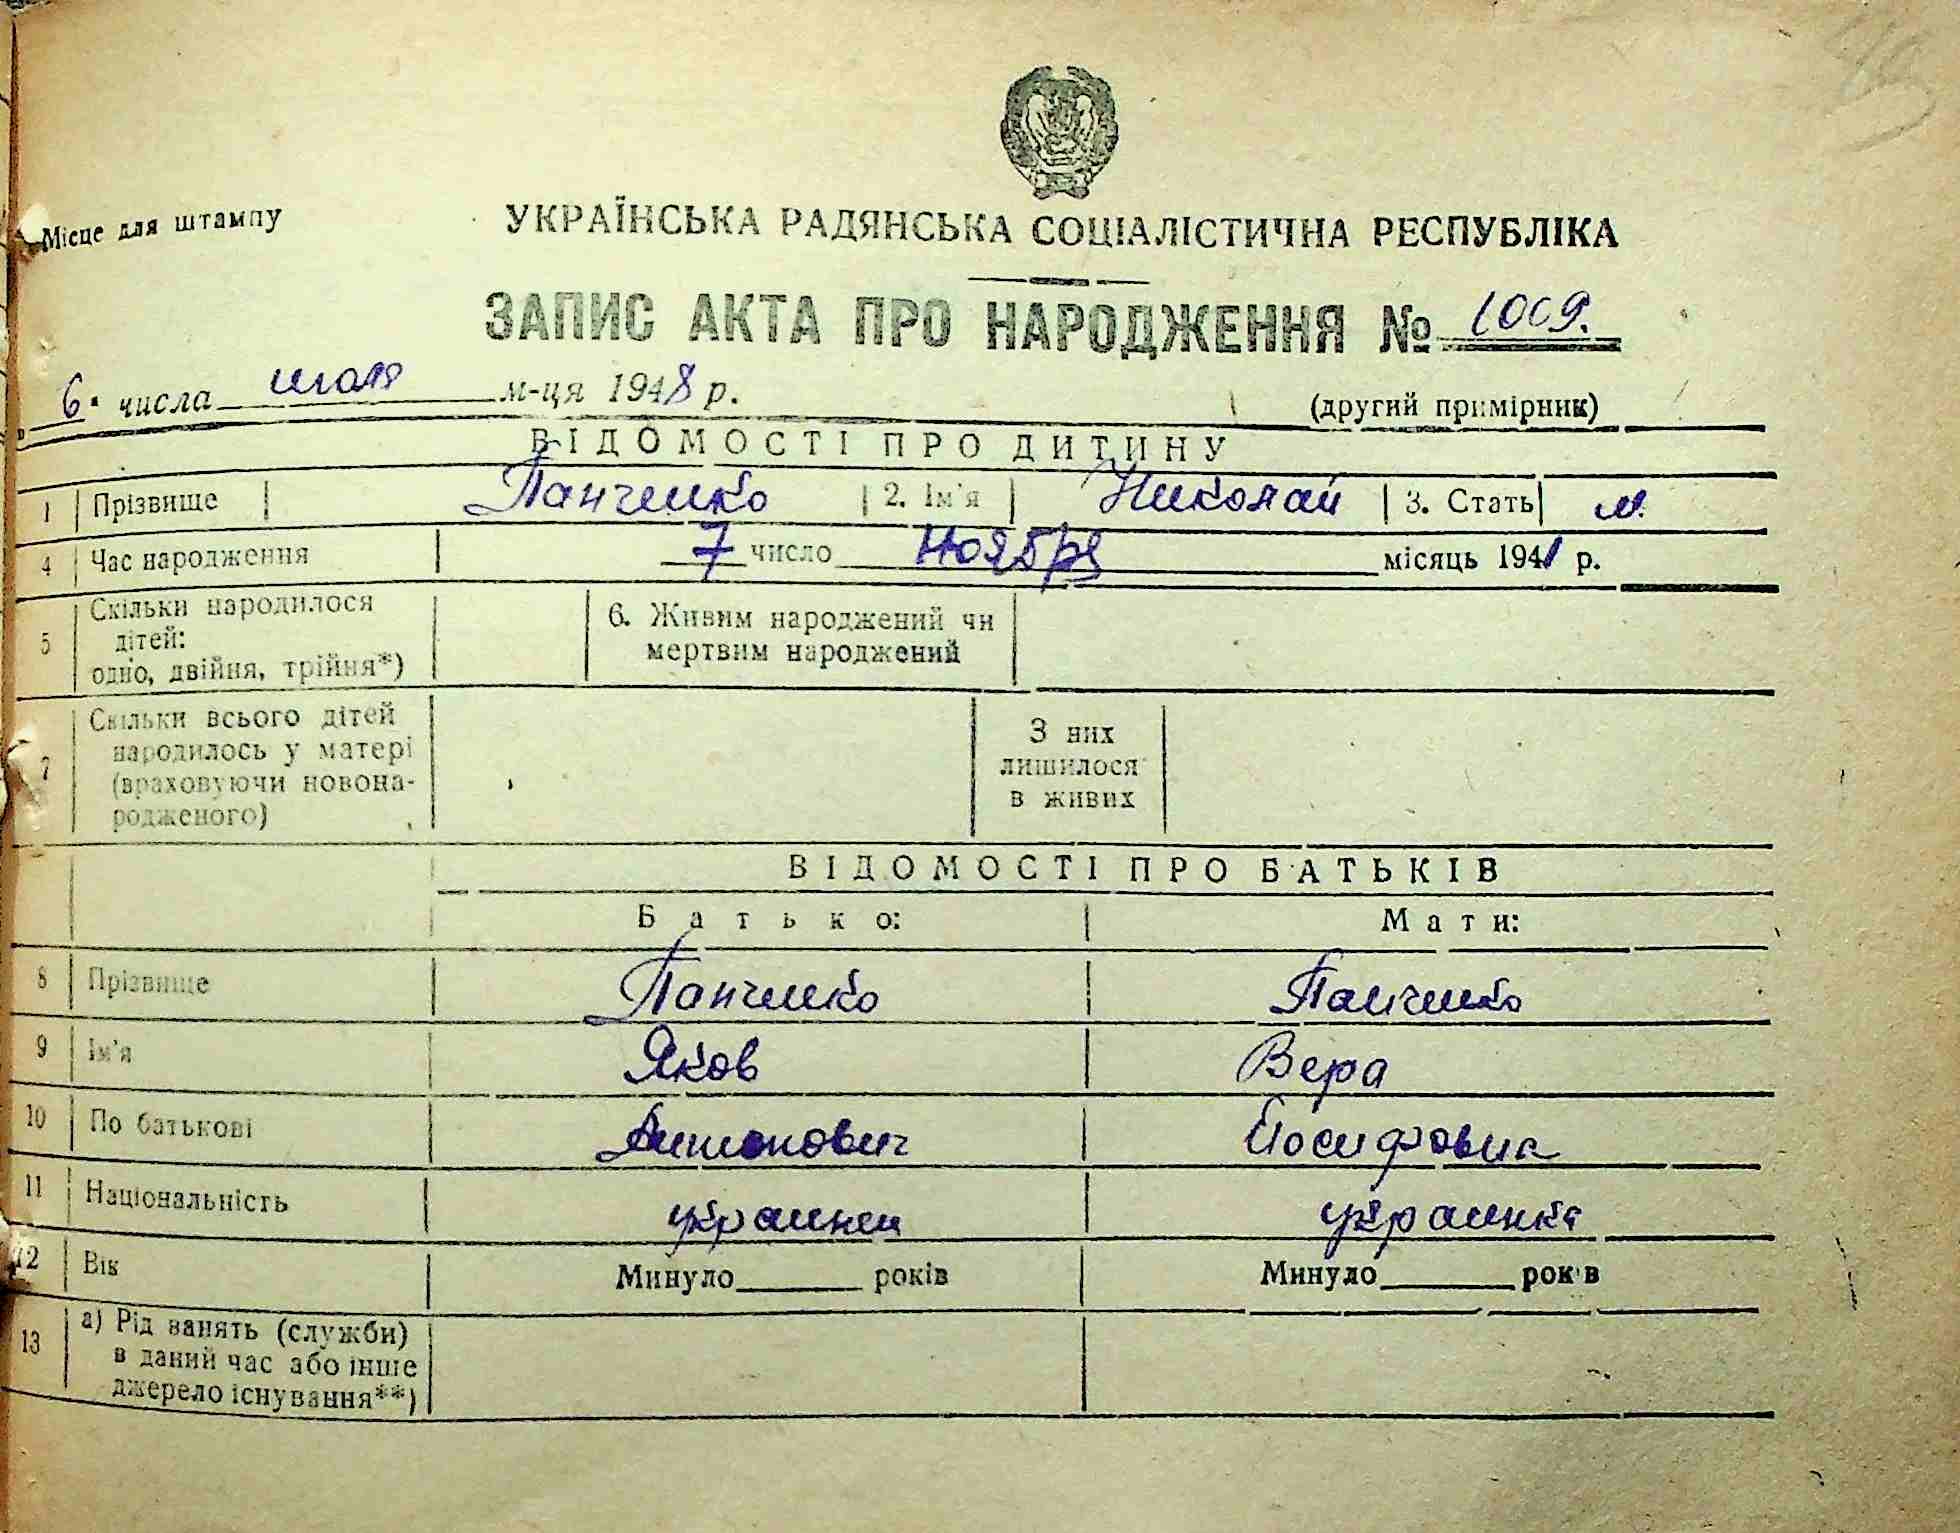 Місце для штампу
УКРАЇНСЬКА РАДЯНСЬКА СОЦІАЛІСТИЧНА РЕСПУБЛІКА
ЗАПИС АКТА ПРО НАРОДЖЕННЯ № 1009.
6. числа июля м-ця 1948 р.
(другий примірник)
ВІДОМОСТІ ПРО ДИТИНУ
1 Прізвище Панченко 2. Ім'я Николай 3. Стать м.
4 Час народження 7 число Ноября місяць 1941 р.
5 Скільки народилося дітей: одно, двійня, трійня*) 6. Живим народжений чи мертвим народжений
7 Скільки всього дітей народилось у матері (враховуючи новонародженого) З них лишилося в живих
ВІДОМОСТІ ПРО БАТЬКІВ
Батько: Мати:
8 Прізвище Панченко Панченко
9 Ім'я Яков Вера
10 По батькові Антонович Иосифовна
11 Національність украинец украинка
12 Вік Минуло років Минуло років
13 а) Рід занять (служби) в даний час або інше джерело існування**)